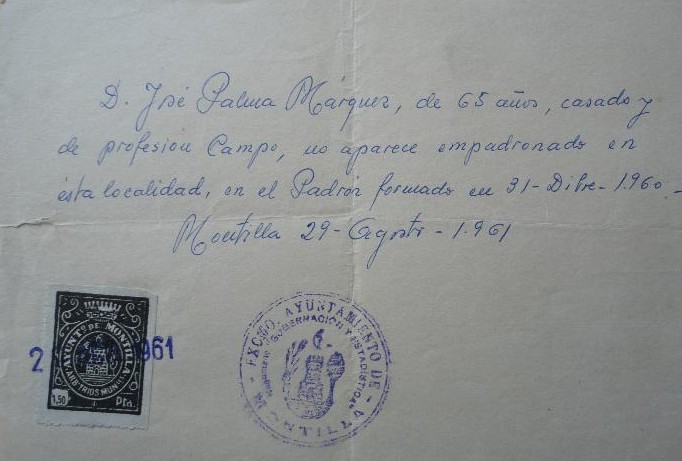 D. José Palma Márquez, de 65 años, casado y
de profesión Campo, no aparece empadronado en
ésta localidad, en el Padrón formado en 31-Dibre-1.960.-
Montilla 29-Agosto-1.961
AYUNTº DE MONTILLA
1,50 Pta.
2 961
EXCMO. AYUNTAMIENTO DE MONTILLA
GOBERNACION Y ESTADISTICA